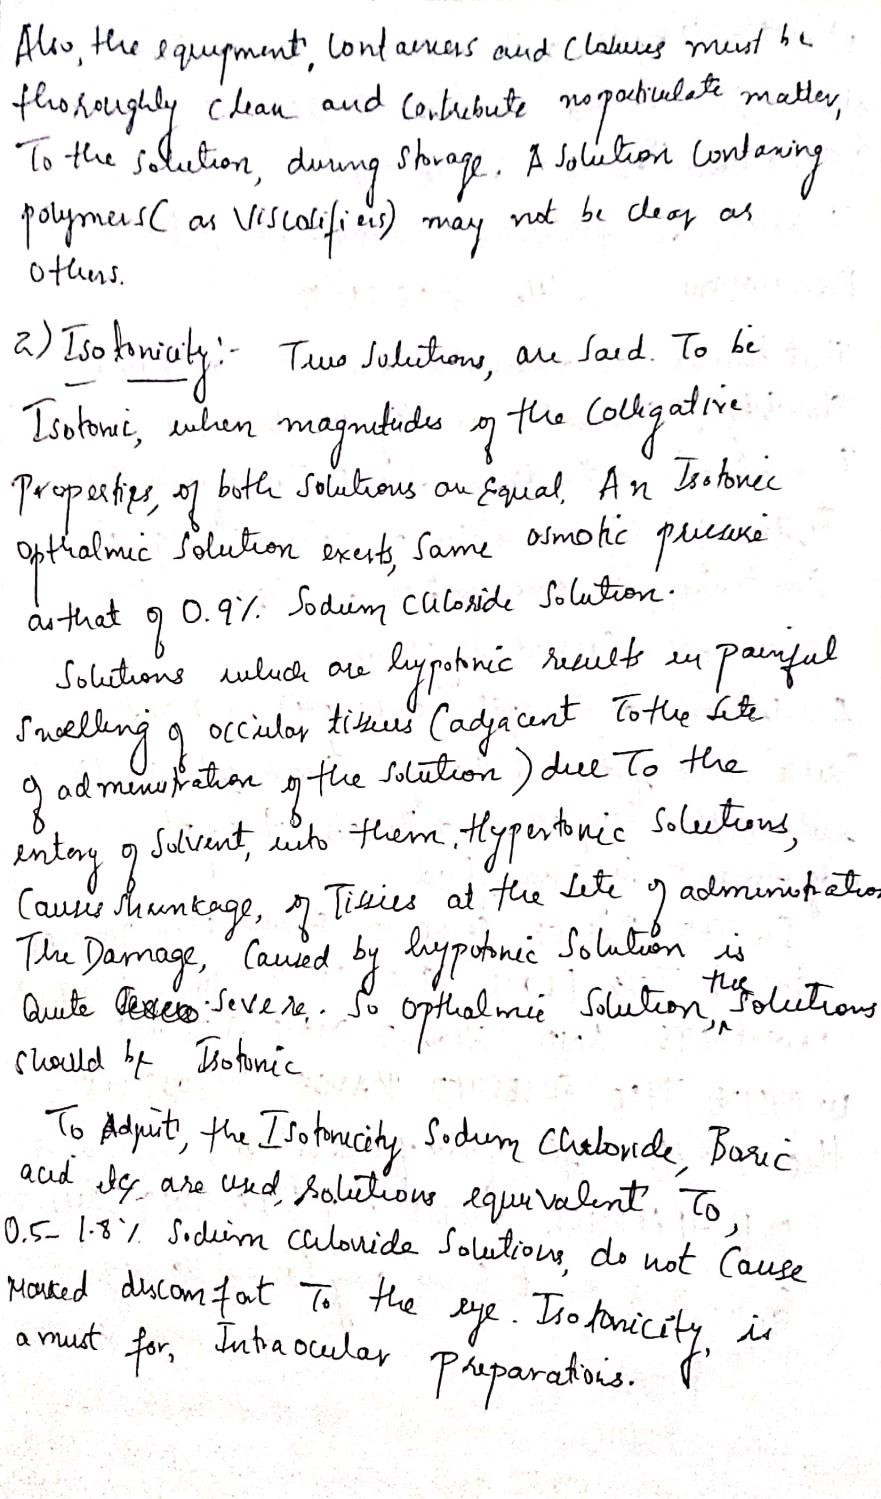 Also, the equipment, containers and closures must be
thoroughly clean and contribute no particulate matter,
To the solution, during storage. A solution containing
polymers( as Viscolifiers) may not be clear as
others.
2) Isotonicity:- Two solutions, are said. To be
Isotonic, when magnitudes of the Colligative
Properties, of both solutions are Equal. An Isotonic
opthalmic solution exerts, same osmotic pressure
as that of 0.9%. Sodium chloride solution.
Solutions which are hypotonic results in painful
swelling of occular tissues (adjacent To the site
of administration of the solution) due To the
entery of solvent, into them. Hypertonic solutions,
Causes shrinkage, of Tissies at the site of administration
The Damage, Caused by hypotonic solution is
Quite severe. So opthalmic solution, the solutions
should be Isotonic
To Adjust, the Isotonicity Sodium Chloride, Boric
acid etc are used, solutions equivalent. To,
0.5- 1.8% Sodium chloride solutions, do not Cause
Marked discomfort To the eye. Isotonicity, is
a must for, Intraocular Preparations.